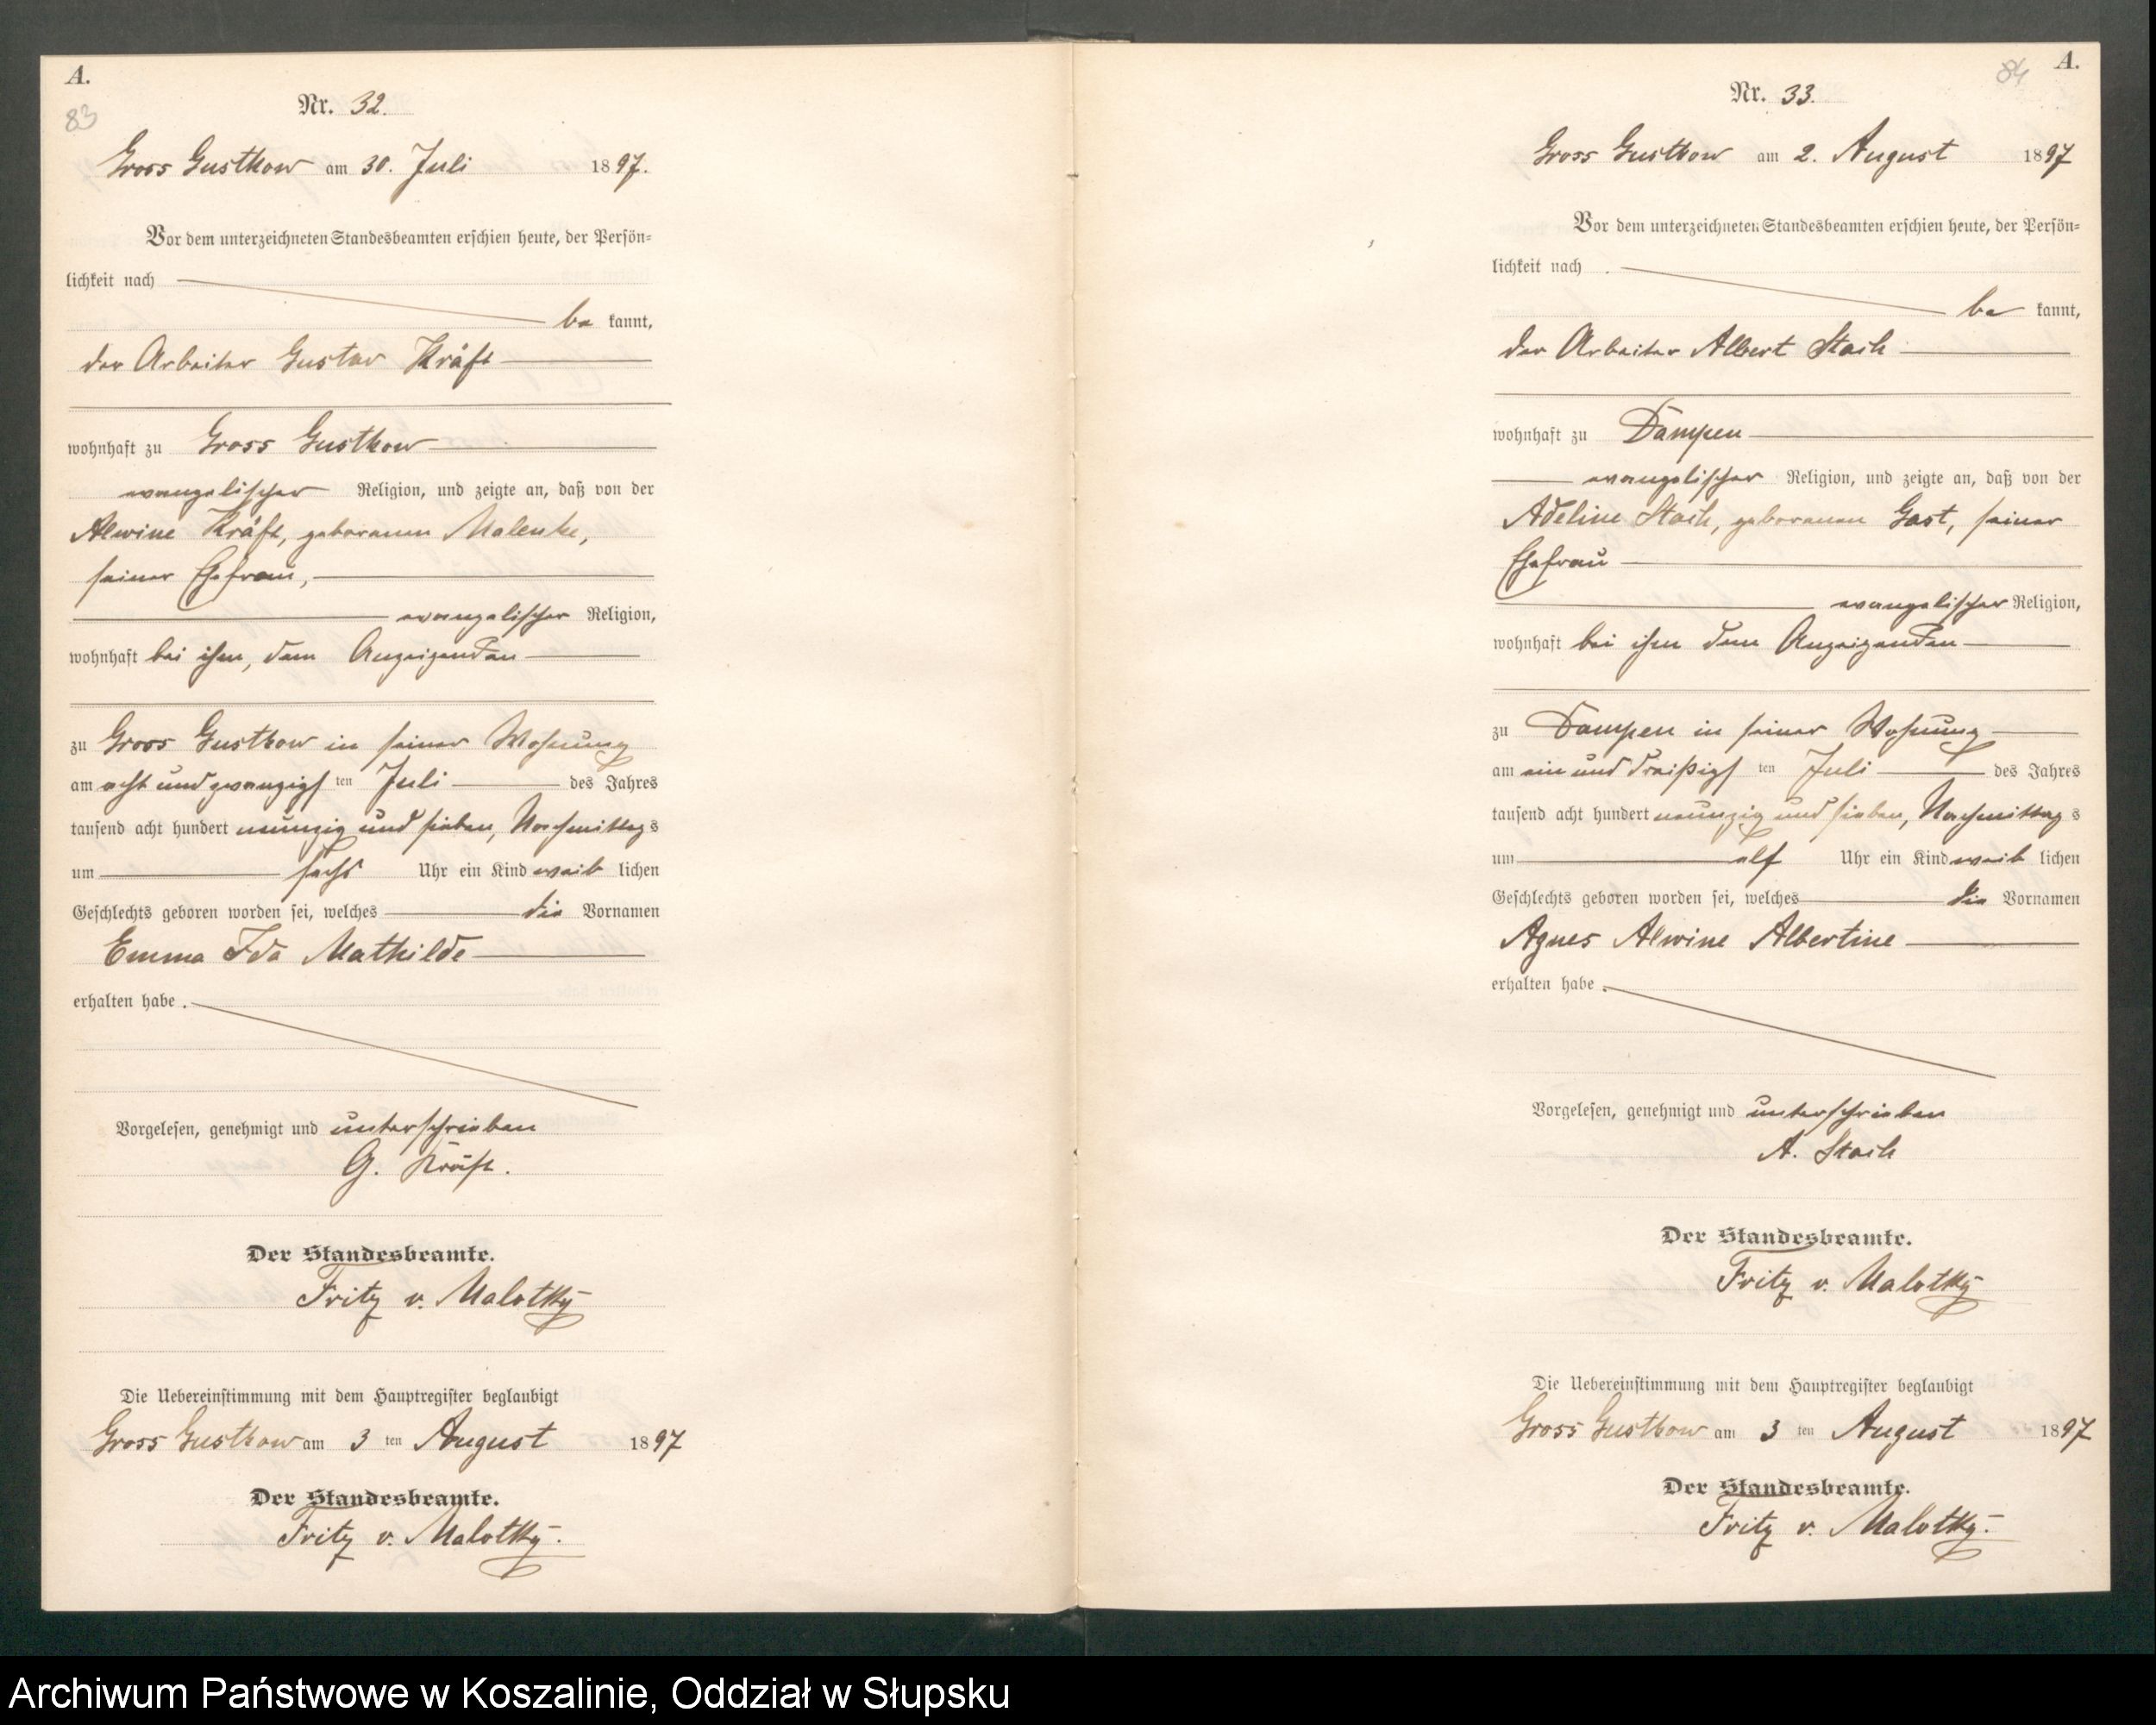 A.
83
Nr. 32.
Gross Gustkow am 30. Juli 1897.
Vor dem unterzeichneten Standesbeamten erschien heute, der Persön-
lichkeit nach
be kannt,
der Arbeiter Gustav Kräft
wohnhaft zu Gross Gustkow
evangelischer Religion, und zeigte an, daß von der
Alwine Kräft, geborenen Malenke,
seiner Ehefrau,
evangelischer Religion,
wohnhaft bei ihm, dem Anzeigenden
zu Gross Gustkow in seiner Wohnung
am acht und zwanzigsten Juli des Jahres
tausend acht hundert neunzig und sieben, Nachmittags
um sechs Uhr ein Kind weiblichen
Geschlechts geboren worden sei, welches die Vornamen
Emma Ida Mathilde
erhalten habe.
Vorgelesen, genehmigt und unterschrieben
G. Kräft.
Der Standesbeamte.
Fritz v. Malottky
Die Uebereinstimmung mit dem Hauptregister beglaubigt
Gross Gustkow am 3 ten August 1897
Der Standesbeamte.
Fritz v. Malottky.
A.
84
Nr. 33.
Gross Gustkow am 2. August 1897
Vor dem unterzeichneten Standesbeamten erschien heute, der Persön-
lichkeit nach
be kannt,
der Arbeiter Albert Stach
wohnhaft zu Dampen
evangelischer Religion, und zeigte an, daß von der
Adeline Stach, geborenen Gast, seiner
Ehefrau
evangelischer Religion,
wohnhaft bei ihm dem Anzeigenden
zu Dampen in seiner Wohnung
am ein und dreißigsten Juli des Jahres
tausend acht hundert neunzig und sieben, Nachmittags
um elf Uhr ein Kind weiblichen
Geschlechts geboren worden sei, welches die Vornamen
Agnes Alwine Albertine
erhalten habe.
Vorgelesen, genehmigt und unterschrieben
A. Stach
Der Standesbeamte.
Fritz v. Malottky
Die Uebereinstimmung mit dem Hauptregister beglaubigt
Gross Gustkow am 3 ten August 1897
Der Standesbeamte.
Fritz v. Malottky.
Archiwum Państwowe w Koszalinie, Oddział w Słupsku